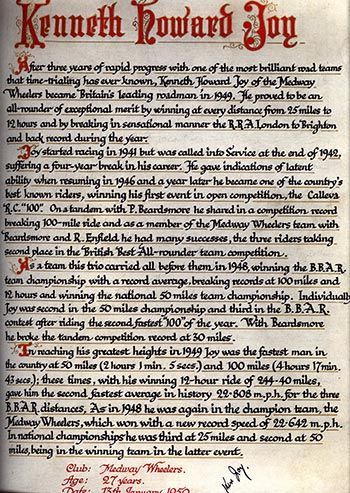 Kenneth Howard Joy
After three years of rapid progress with one of the most brilliant road teams
that time-trialing has ever known, Kenneth Howard Joy of the Medway
Wheelers became Britain's leading roadman in 1949. He proved to be an
all-rounder of exceptional merit by winning at every distance from 25 miles to
12 hours and by breaking in sensational manner the R.R.A. London to Brighton
and back record during the year.
Joy started racing in 1941 but was called into Service at the end of 1942,
suffering a four-year break in his career. He gave indications of latent
ability when resuming in 1946 and a year later he became one of the country's
best known riders, winning his first event in open competition, the Calleva
"R.C. "100". On a tandem with P. Beardsmore he shared in a competition record
breaking 100-mile ride and as a member of the Medway Wheelers team with
Beardsmore and R. Enfield he had many successes, the three riders taking
second place in the British Best All-rounder team competition.
As a team this trio carried all before them in 1948, winning the B.B.A.R.
team championship with a record average, breaking records at 100 miles and
12 hours and winning the national 50 miles team championship. Individually
Joy was second in the 50 miles championship and third in the B.B.A.R.
contest after riding the second fastest "100" of the year. With Beardsmore
he broke the tandem competition record at 30 miles.
In reaching his greatest heights in 1949 Joy was the fastest man in
the country at 50 miles (2 hours 1 min. 5 secs.) and 100 miles (4 hours 17 min.
43 secs.); these times, with his winning 12-hour ride of 244·40 miles,
gave him the second fastest average in history 22·808 m.p.h. for the three
B.B.A.R. distances. As in 1948 he was again in the champion team, the
Medway Wheelers, which won with a new record speed of 22·642 m.p.h.
In national championships he was third at 25 miles and second at 50
miles, being in the winning team in the latter event.
Club: Medway Wheelers.
Age: 27 years.
Date: 13th January 1950
Ken Joy.